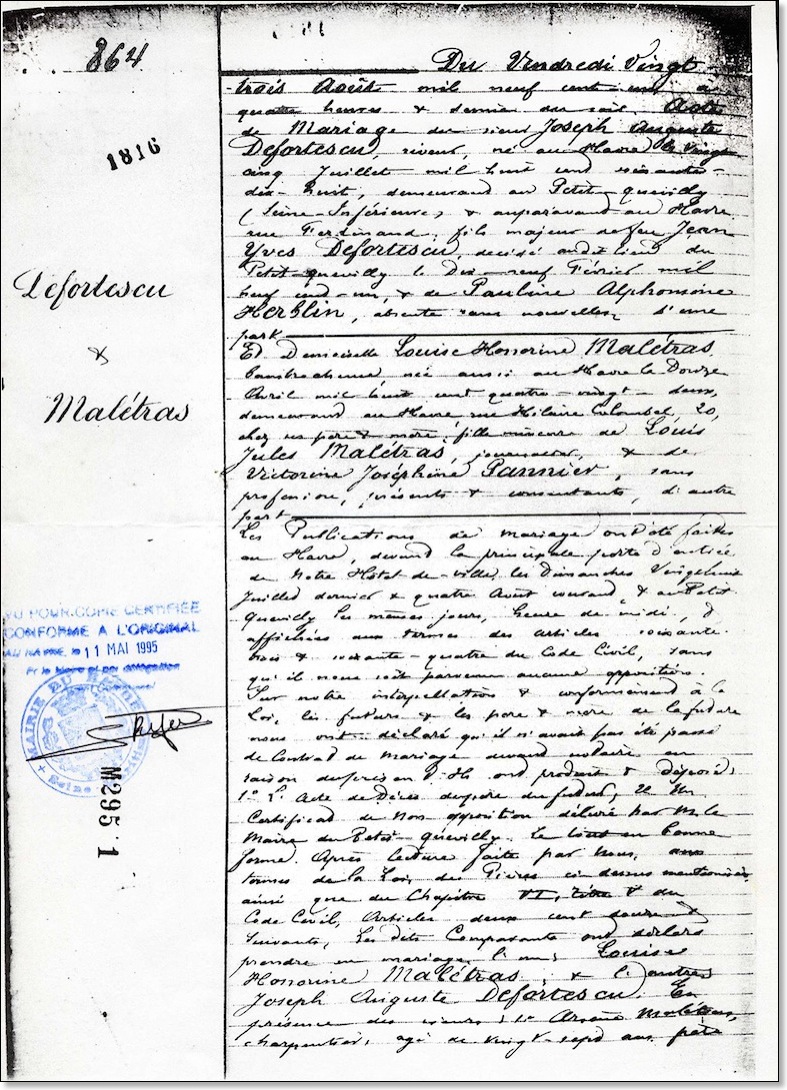 864
1816
Defortescu
&
Malétras
VU POUR COPIE CERTIFIÉE
CONFORME A L'ORIGINAL
AU HAVRE, le 11 MAI 1995
Pr le Maire et par délégation
MAIRIE DU HAVRE
M295 1
Du Vendredi Vingt
trois Août mil neuf cent un à
quatre heures & demie du soir. Acte
de Mariage du sieur Joseph Auguste
Defortescu, riveur, né au Havre le vingt
cinq Juillet mil huit cent soixante-
dix-huit, demeurant au Petit-Quevilly
(Seine-Inférieure) & auparavant au Havre
rue Ferdinand, fils majeur de feu Jean
Yves Defortescu, décédé audit lieu du
Petit-Quevilly le Dix-neuf Février mil
neuf cent-un, & de Pauline Alphonsine
Herblin, absente sans nouvelles, d'une
part
Et Demoiselle Louise Honorine Malétras
née aussi au Havre le Douze
Avril mil huit cent quatre-vingt-deux,
demeurant au Havre rue Hilaire Colombel, 20,
chez ses père & mère, fille mineure de Louis
Jules Malétras, journalier, & de
Victorine Joséphine Pannier, sans
profession, présents & consentants, d'autre
part
Les Publications de mariage ont été faites
au Havre, devant la principale porte d'entrée
de Notre Hôtel-de-ville, les Dimanches Vingt huit
Juillet dernier & quatre Août courant & au Petit
Quevilly les mêmes jours, heure de midi, &
affichées aux termes des articles soixante-
trois & soixante-quatre du Code Civil, sans
qu'il nous soit parvenu aucune opposition.
Sur notre interpellation & conformément à la
Loi, les futurs & les père & mère de la future
nous ont déclaré qu'il n'avait pas été passé
de Contrat de Mariage devant notaire en
raison du présent. Ils ont produit & déposé:
1° L'Acte de Décès du père du futur, 2° Un
Certificat de Non opposition délivré par M. le
Maire du Petit-Quevilly. Le tout en bonne
forme. Après lecture faite par Nous, aux
termes de la Loi, des Pièces ci-dessus mentionnées
ainsi que du Chapitre VI, Titre V du
Code Civil, Articles deux cent douze &
suivants, Les dits Comparants ont déclaré
prendre en mariage l'un, Louise
Honorine Malétras, & l'autre,
Joseph Auguste Defortescu. En
présence des sieurs: 1° Arsène Malétras,
charpentier, âgé de vingt-sept ans, frère